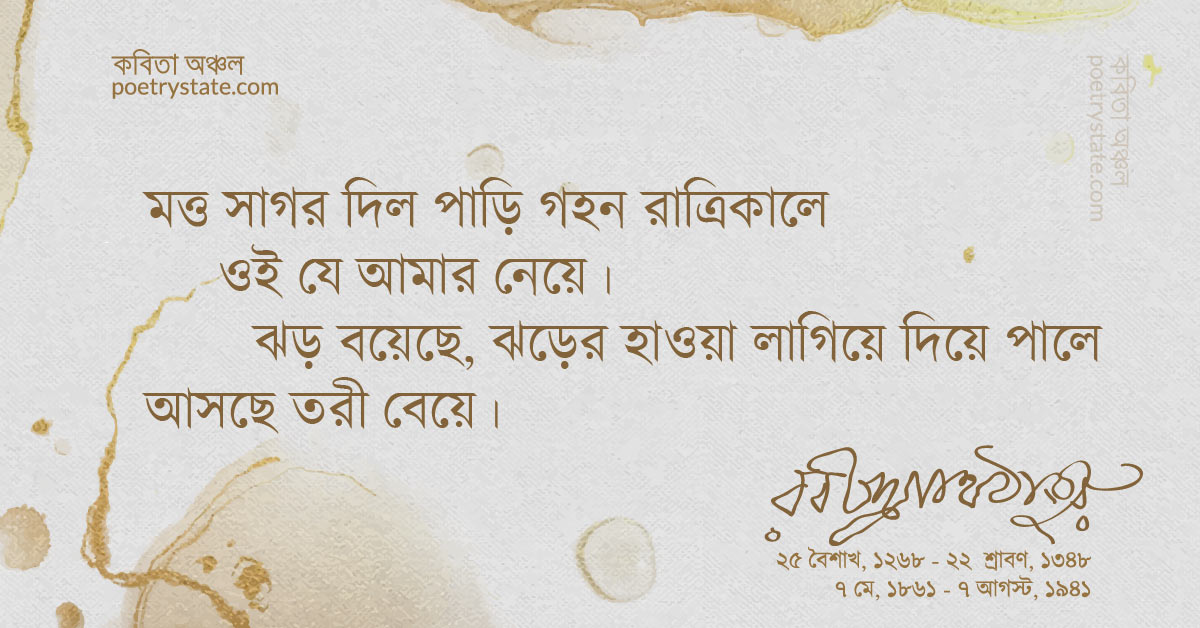 কবিতা অঞ্চল
poetrystate.com
কবিতা অঞ্চল
poetrystate.com
মত্ত সাগর দিল পাড়ি গহন রাত্রিকালে
ওই যে আমার নেয়ে।
ঝড় বয়েছে, ঝড়ের হাওয়া লাগিয়ে দিয়ে পালে
আসছে তরী বেয়ে।
রবীন্দ্রনাথ ঠাকুর
২৫ বৈশাখ, ১২৬৮ - ২২ শ্রাবণ, ১৩৪৮
৭ মে, ১৮৬১ - ৭ আগস্ট, ১৯৪১